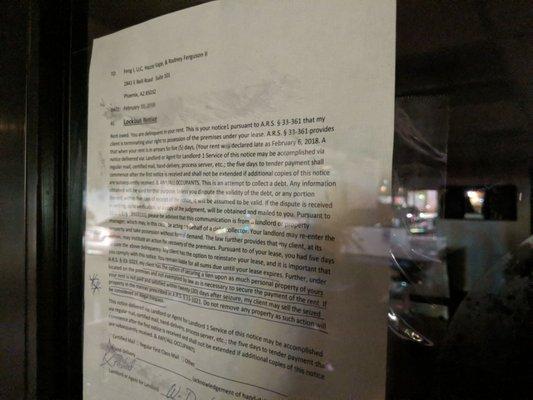 TO: Feng I, LLC, Hazze Vaje, & Rodney Ferguson II
2841 E Bell Road Suite 101
Phoenix, AZ 85032
DATE: February
RE: Lockout Notice
Rent owed. You are delinquent in your rent. This is your notice1 pursuant to A.R.S. § 33-361 that my
client is terminating your right to possession of the premises under your lease. A.R.S. § 33-361 provides
that when your rent is in arrears for five (5) days, (Your rent was declared late as of February 6, 2018. A
notice delivered via: Landlord or Agent for Landlord 1 Service of this notice may be accomplished via
regular mail, certified mail, hand-delivery, process server, etc.; the five days to tender payment shall
commence after the first notice is received and shall not be extended if additional copies of this notice
are subsequently received. & ANY/ALL OCCUPANTS. This is an attempt to collect a debt. Any information
obtained will be used for the purpose. Unless you dispute the validity of the debt, or any portion
thereof, within five days of receipt of this notice, it will be assumed to be valid. If the dispute is received
in writing, verification, or a copy of the judgment, will be obtained and mailed to you. Pursuant to
please be advised that this communication is from a landlord or property
manager, which may, in this case, be acting on behalf of a debt collector. Your landlord may re-enter the
property and take possession without formal demand. The law further provides that my client, at its
option, may institute an action for recovery of the premises. Pursuant to of your lease, you had five days
to cure the above delinquency. My client has the option to reinstate your lease, and it is important that
you comply with this notice. You remain liable for all sums due until your lease expires. Further, under
A.R.S. § 33-1023, my client has the option of securing a lien upon as much personal property of yours
located on the premises and not exempted by law as is necessary to secure the payment of the rent. If
your rent is not paid and satisfied within twenty (20) days after seizure, my client may sell the seized
property in the manner prescribed in A.R.S. § 33-1023. Do not remove any property as such action will
be considered an illegal trespass.
This notice delivered via: Landlord or Agent for Landlord 1 Service of this notice may be accomplished
via regular mail, certified mail, hand-delivery, process server, etc.; the five days to tender payment shall
commence after the first notice is received and shall not be extended if additional copies of this notice
are subsequently received. & ANY/ALL OCCUPANTS
Certified Mail Regular First Class Mail Other
Hand Delivery (acknowledgement of hand
Landlord or Agent for Landlord